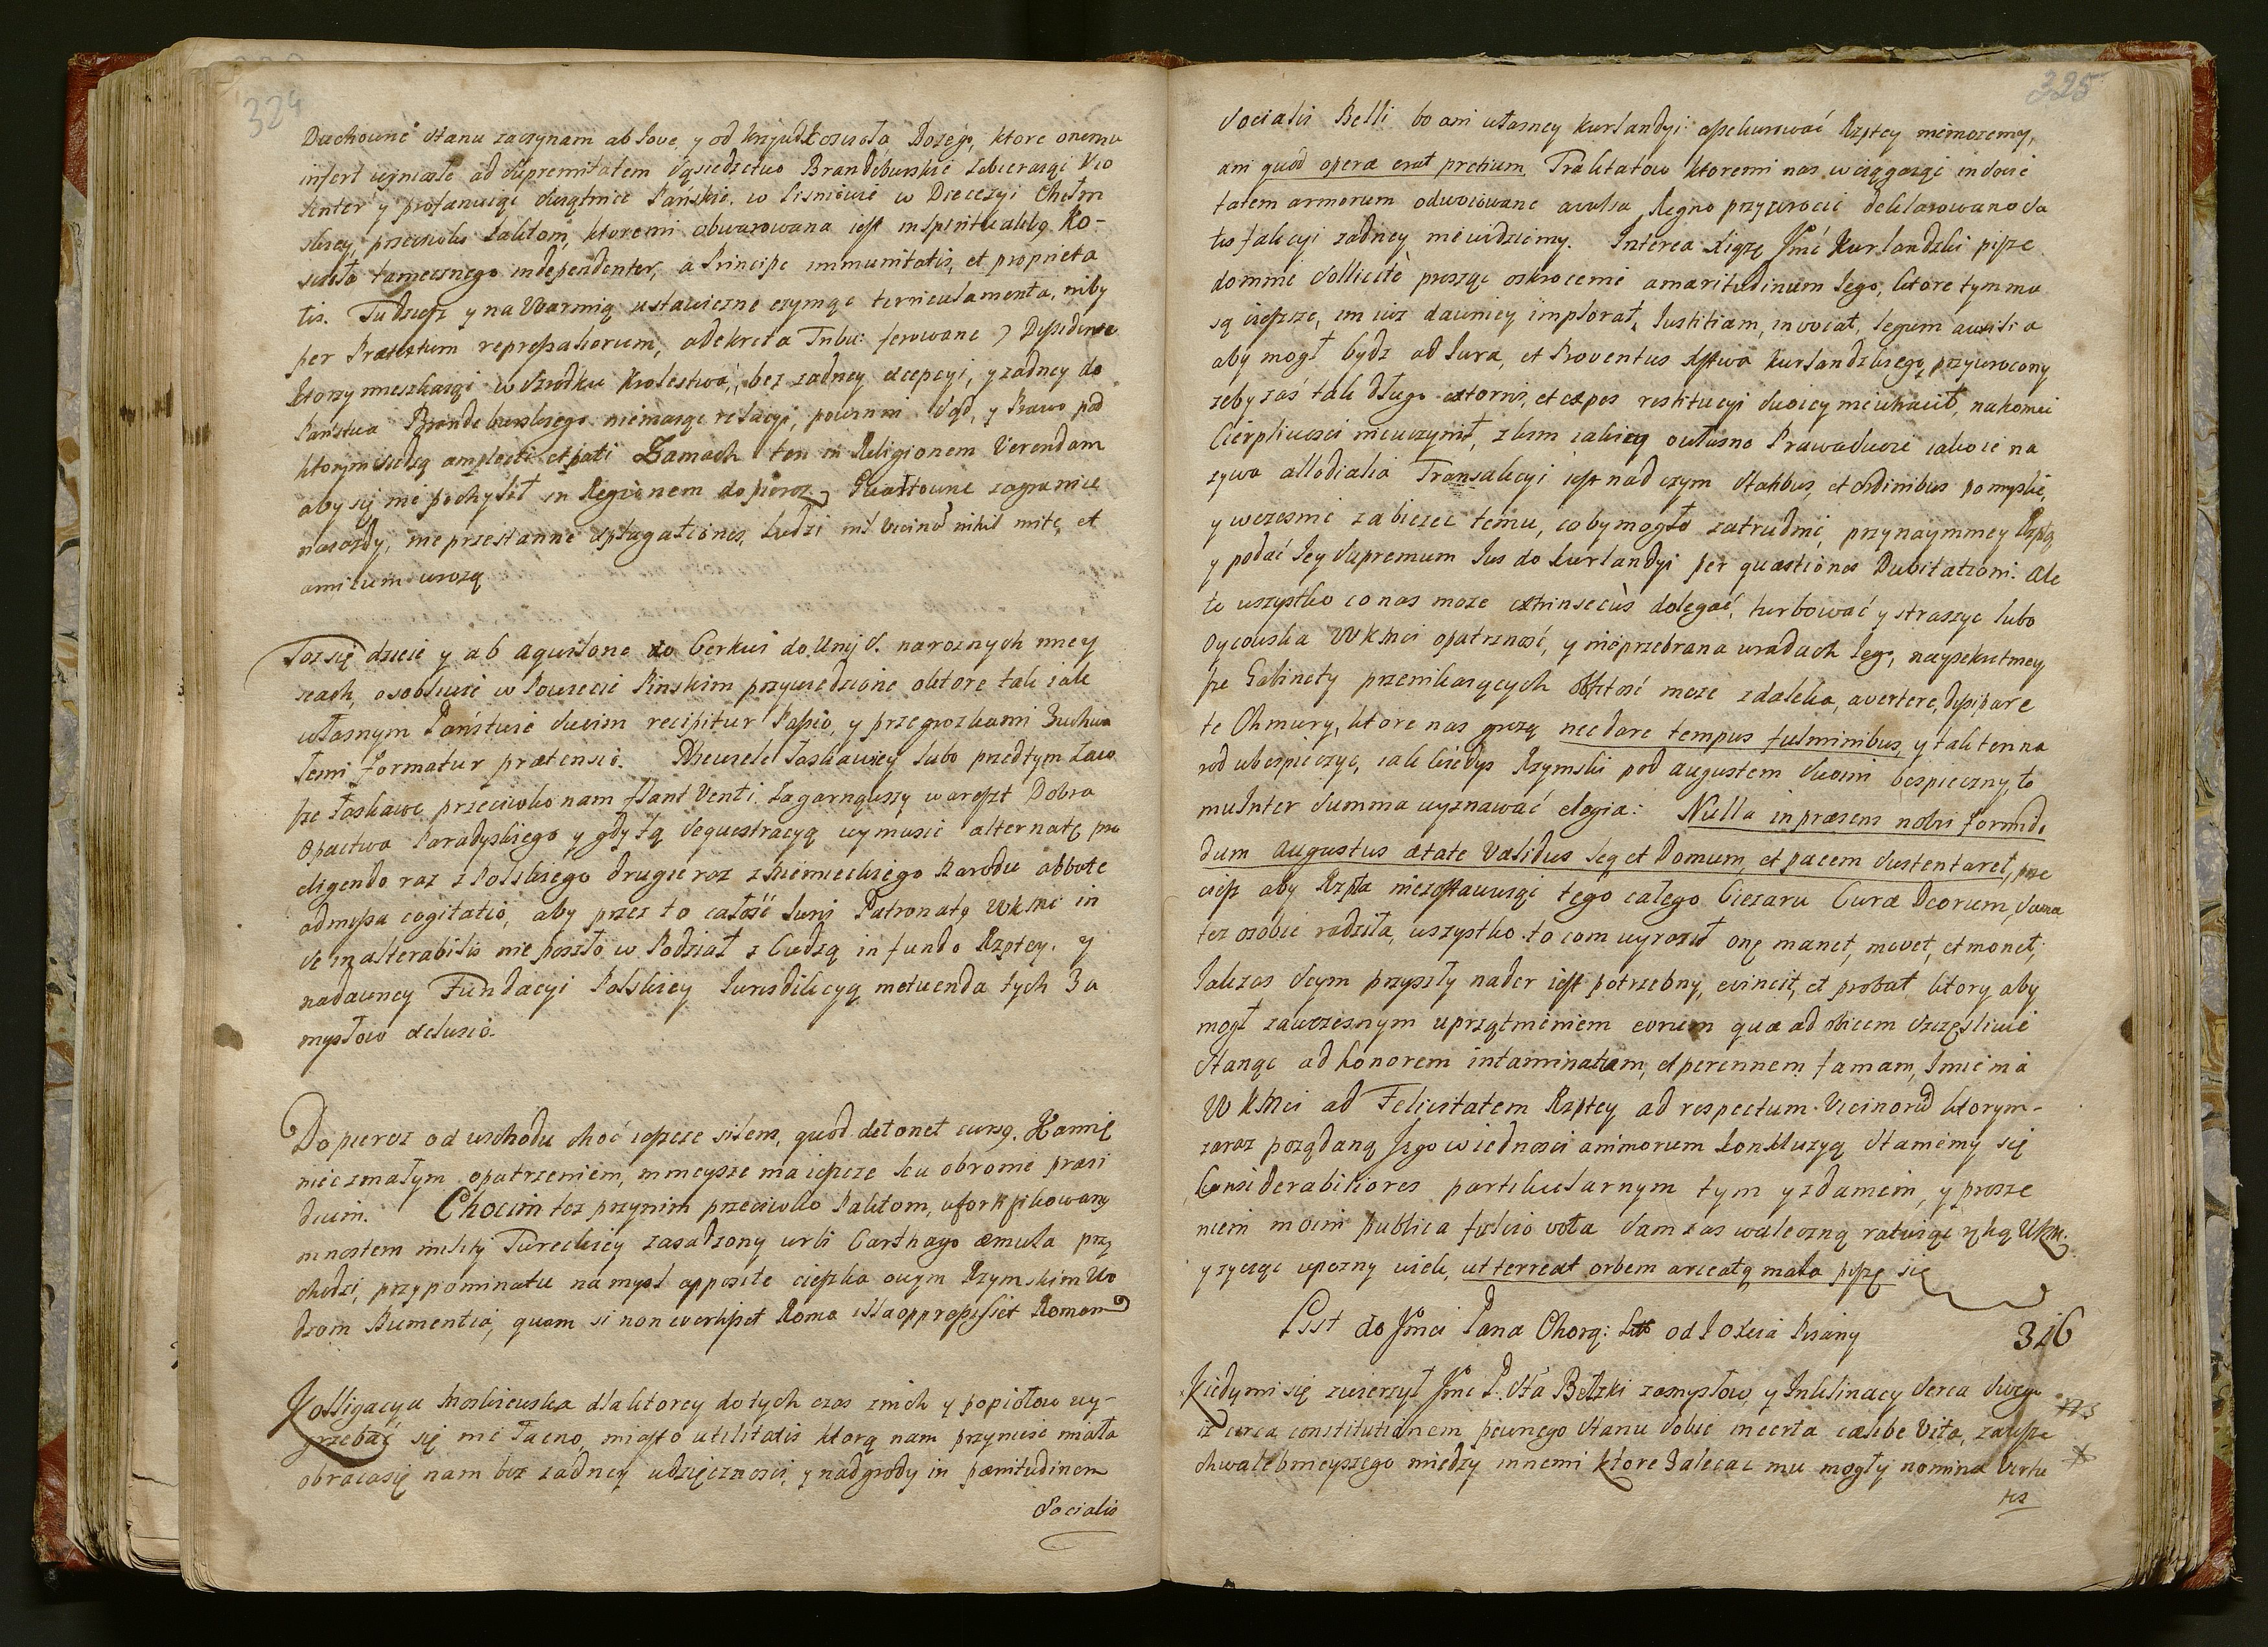 324
Duchowne stanu zaczynam ab Jove, y od krzywd Koscioła Bożego, ktore onemu
infert ujmiałe ad supremitatem sąsiedztwo Brandeburskie zabieraiąc Vio
lenter y profanuiąc swiątnice Pańskie. w Lisniowie w Diecezyi Chełm
skiey, przeciwko Paktom, ktoremi obwarowana iest in spiritualibq Ko-
scioła tamecznego independenter, a Principe immunitatis, et proprieta
tis. Tudziesz y na Warmią ustawiczne czyniąc terriculamenta, niby
per Prætextum represaliorum, a dekreta Tribu: ferowane Dissidentes
ktorzy mieszkaiąc w szrodku krolestwa, bez zadney excepcyi, y zadney do
Panstwa Brandeburskiego niemaiąc relacyi, powinni Sąd, y Prawo pod
ktorym siedzą amplecti et pati Zamach ten in Religionem Verendam
aby się nie pochylił in Regionem dopieroz Gwałtowne zagranice
naiazdy, nie przestanne expilagationes, ludzi nil vicino nihil mite, et
amicum wrożą
Toz się dzieie y ab aquilone do Cerkwi do Unij S. naroznych miey
scach, osobliwie w Powiecie Pinskim przywiedzione o ktore tak iak
własnym Państwie swoim recipitur Passio, y przegrozkami Zuchwa
łemi formatur prætensio. Dawicie łaskawiey lubo przedtym zaw
sze łaskawe przeciwko nam flant Venti. Zagarnąwszy w areszt Dobra
Opactwa Paradyskiego y gdy tą sequestracyą wymusic alternatę pro
eligendo raz z Polskiego drugie raz z niemieckiego Narodu abbate
admissa cogitatio, aby przez to całość Juris Patronatq WKMci in
se inalterabilis nie poszło w Podział z Cudzą in fundo Rzptey. y
nadawney Fundacyi Polskiey Jurisdikcyą metuenda tych Za
mysłow delusio.
Dopieroz od wschodu choć ieszcze silem, quod detonet cursq. Kamie
niec z małym opatrzeniem, mnieysze ma ieszcze ku obronie præsi
dium. Chocim tez przynim przeciwko Paktom, ufortyfikowany
mnostem mility Tureckiey zasadzony urbi Carthago æmula przy
chodzi, przypominatu na mysl opposite cieszka owym Rzymskim Wo
dzom Numentia, quam si non evertisset Roma illa oppressisset Romam
Kolligacya Moskiewska dla ktorey do tych czas z nich y popiołow wy-
grzebać się nie łacno, miasto utilitatis ktorą nam przyniesc miała
obraca się nam bez zadney wdzięcznosci, y nadgrody in pænitudinem
Socialis
325
Socialis Belli bo ani własney kurlandyi assekurować Rzptey niemozemy,
ani quod operæ erat pretium Traktatow ktoremi nas wciągaiąc in socie
tatem armorum odwoiowane avulsa Regno przywrocić deklarowano Sa
tisfakcyi zadney niewidziemy. Interea Xiązę Jmć Kurlandzki pisze
do mnie Sollicitè prosząc o skrocenie amaritudinum Jego, ktore tym mu
są cięszsze, im iuz dawniey implorat, Justitiam, invocat, legum auxilia
aby mogł bydz ad Jura, et Proventus Xstwa Kurlandzkiego, przywrocony
zeby zaś tak długo extorris, et expes restitucyi swoiey nieutracił, nakoniec
Cierpliwosci nieuczynił, z kim iakiey o własne Prawa swoie iako ie na
zywa allodialia Transakcyi iest nad czym Statibus, et Ordinibus pomyslić,
y wczesnie zabiezec temu, coby mogło zatrudnic, przynaymniey Rzptą
y podać Jey Supremum Jus do kurlandyi per quæstiones Dubitationi. Ale
to wszystko co nas moze extrinsecùs dolegać, turbować y straszyc lubo
Oycowska WKMci opatrzność, y nieprzebrana w radach Jego, naysekretniey
sze Gabinety przenikaiących obfitość moze zdaleka, avertere, dissipare
te Chmury, ktore nas grożą nec dare tempus fulminibus, y tak ten na
rod ubezpieczyć, iak kiedys Rzymski pod augustem swoim bespieczny, to
mu inter summa wyznawać elogia: Nulla in præsens nobis formido
dum augustus ætate validus seq et Domum, et pacem sustentaret, prze
ciesz aby Rzpta niezostawuiąc tego całego Ciezaru Cura Deorum, sama
tez osobie radziła, wszystko to com wyraził onę manet, movet, et monet,
Jak zas Seym przyszły nader iest potrzebny, evincit, et probat ktory aby
mogł zawczesnym uprzątnieniem eorum quæ ad obicem Szczęsliwie
Stanąc ad honorem intaminatam, et perennem famam, Jmienia
WKMci ad Felicitatem Rzptey ad respectum Vicinoru ktorym-
zaraz pożądaną Jego w iednosci animorum konkluzyą Staniemy się
Considerabiliores partikularnym tym y zdaniem, y prosze
niem moim publica fulcio vota Sam zas waleczną całuiąc rękę WKM.
y zyczac upozny wiek, ut terreat orbem arceatq mala piszę się
List do Jmci Pana Chorą: Litt od Xcia Pisany 316
Kiedy mi się zwierzył Jmć P. Sta Bełzki zamysłow, y Inklinacy serca swego
iz circa constitutionem pewnego Stanu sobie incerta cælibe Vita, zawsze
chwalebnieyszego miedzy innemi ktore Zalecac mu mogły nomina Virtu
tis